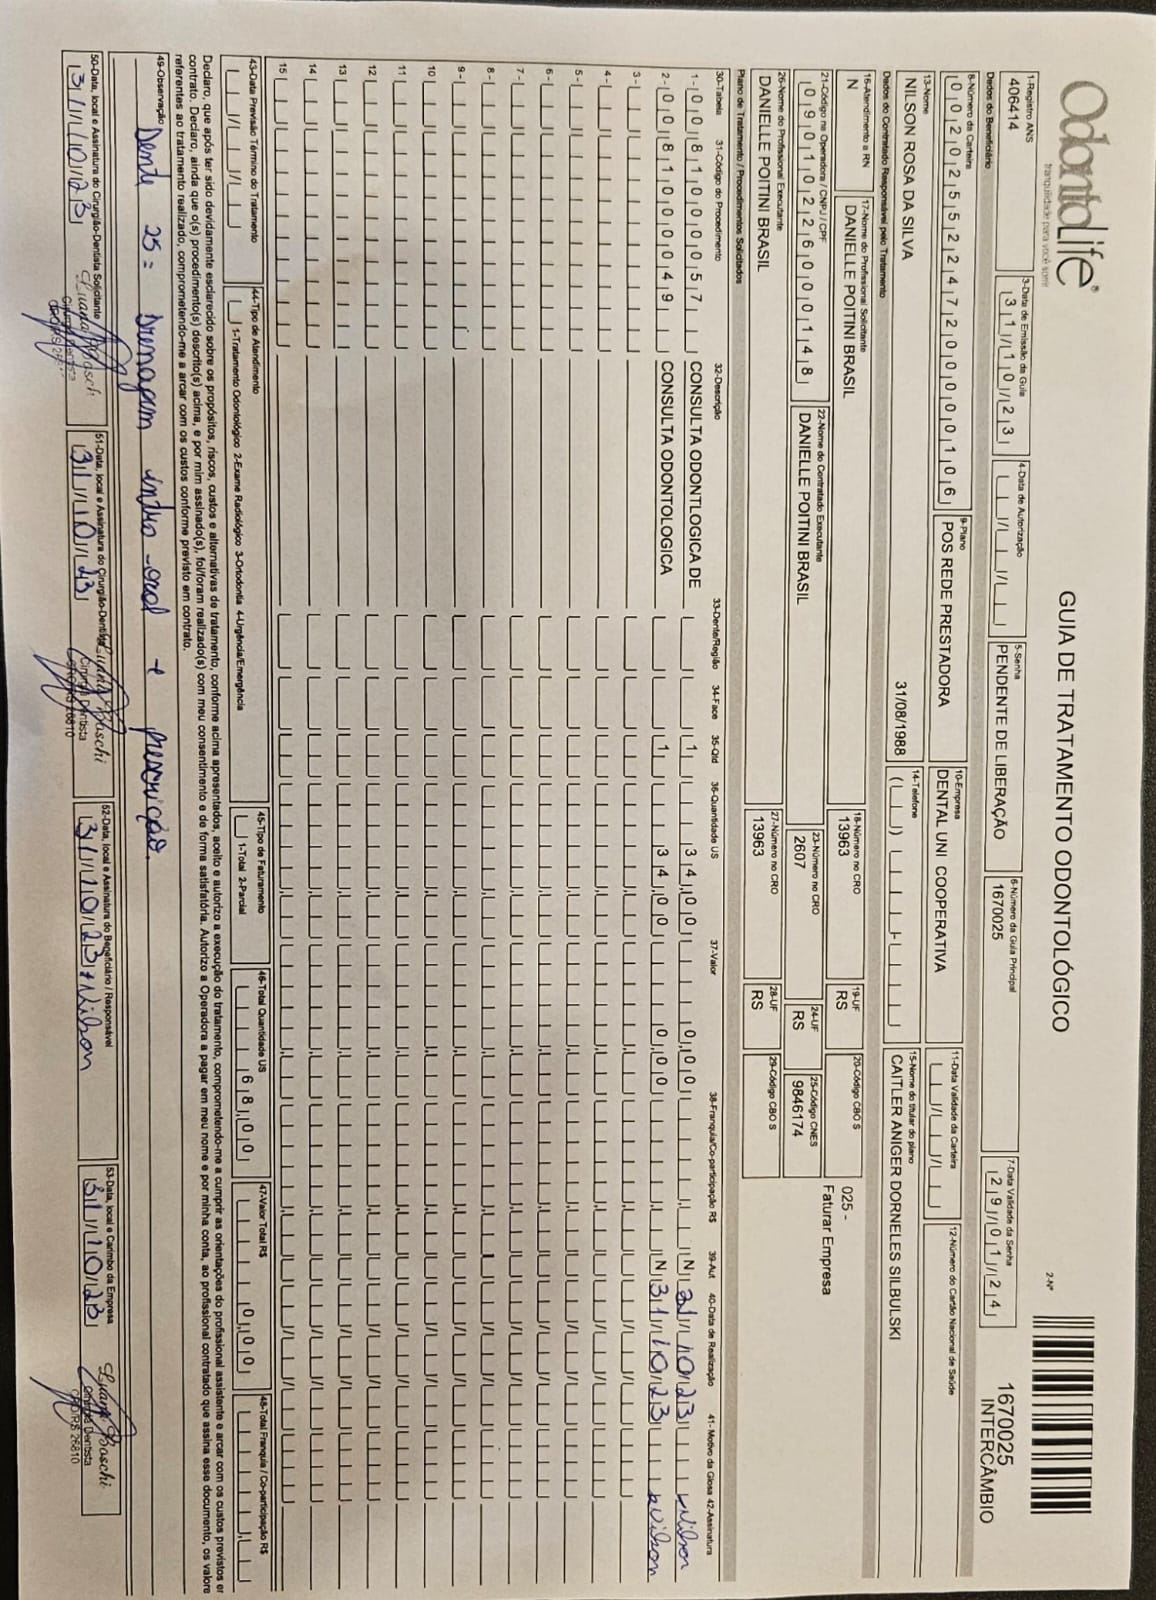 OdontoLife®
tranquilidade para você sorrir
GUIA DE TRATAMENTO ODONTOLÓGICO
2-Nº
1670025
INTERCÂMBIO
1-Registro ANS
406414
3-Data de Emissão da Guia
31/10/23
4-Data de Autorização
5-Senha
PENDENTE DE LIBERAÇÃO
6-Número da Guia Principal
1670025
7-Data Validade da Senha
29/01/24
Dados do Beneficiário
8-Número da Carteira
00202552247200000106
9-Plano
POS REDE PRESTADORA
10-Empresa
DENTAL UNI COOPERATIVA
11-Data Validade da Carteira
12-Número do Cartão Nacional de Saúde
13-Nome
NILSON ROSA DA SILVA
31/08/1988
14-Telefone
15-Nome do titular do plano
CAITLER ANIGER DORNELES SILBULSKI
Dados do Contratado Responsável pelo Tratamento
16-Atendimento a RN
N
17-Nome do Profissional Solicitante
DANIELLE POITINI BRASIL
18-Número no CRO
13963
19-UF
RS
20-Código CBO S
025 -
Faturar Empresa
21-Código na Operadora / CNPJ / CPF
09010226000148
22-Nome do Contratado Executante
DANIELLE POITINI BRASIL
23-Número no CRO
2607
24-UF
RS
25-Código CNES
9846174
26-Nome do Profissional Executante
DANIELLE POITINI BRASIL
27-Número no CRO
13963
28-UF
RS
29-Código CBO S
Plano de Tratamento / Procedimentos Solicitados
30-Tabela 31-Código do Procedimento 32-Descrição 33-Dente/Região 34-Face 35-Qtd 36-Quantidade US 37-Valor 38-Franquia/Co-participação R$ 39-Aut 40-Data de Realização 41- Motivo da Glosa 42-Assinatura
1- 00 81000057 CONSULTA ODONTLOGICA DE 1 34,00 0,00 N 31/10/23 Nilson
2- 00 81000049 CONSULTA ODONTOLOGICA 1 34,00 0,00 N 31/10/23 Nilson
3-
4-
5-
6-
7-
8-
9-
10
11
12
13
14
15
43-Data Previsão Término do Tratamento
44-Tipo de Atendimento
1-Tratamento Odontológico 2-Exame Radiológico 3-Ortodontia 4-Urgência/Emergência
45-Tipo de Faturamento
1-Total 2-Parcial
46-Total Quantidade US
68,00
47-Valor Total R$
0,00
48-Total Franquia / Co-participação R$
Declaro, que após ter sido devidamente esclarecido sobre os propósitos, riscos, custos e alternativas de tratamento, conforme acima apresentados, aceito e autorizo a execução do tratamento, comprometendo-me a cumprir as orientações do profissional assistente e arcar com os custos previstos em
contrato. Declaro, ainda que o(s) procedimento(s) descrito(s) acima, e por mim assinado(s), foi/foram realizado(s) com meu consentimento e de forma satisfatória. Autorizo a Operadora a pagar em meu nome e por minha conta, ao profissional contratado que assina esse documento, os valore
referentes ao tratamento realizado, comprometendo-me a arcar com os custos conforme previsto em contrato.
49-Observação
Dente 25: Drenagem intra-oral + prescrição.
50-Data, local e Assinatura do Cirurgião-Dentista Solicitante
31/10/23
51-Data, local e Assinatura do Cirurgião-Dentista
31/10/23
Cirurgiã Dentista
CRO/RS 26810
52-Data, local e Assinatura do Beneficiário / Responsável
31/10/23 Nilson
53-Data, local e Carimbo da Empresa
31/10/23
Cirurgiã Dentista
CRO/RS 26810